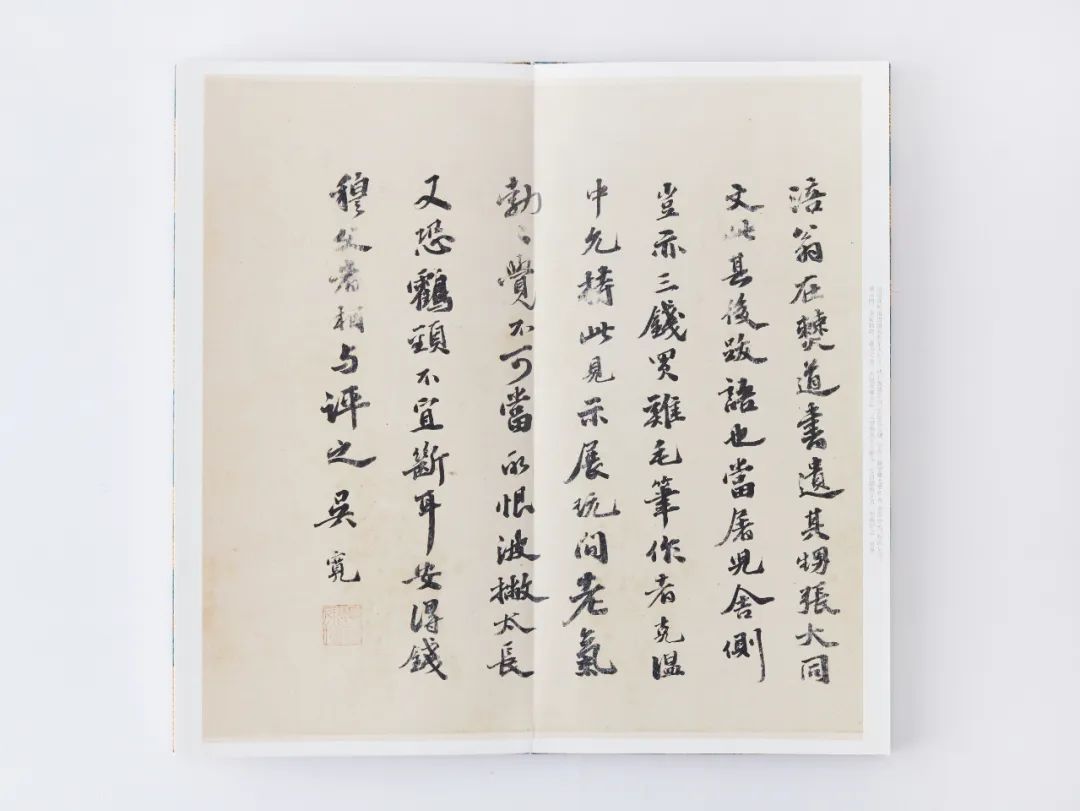 涪翁在僰道書遺其甥張大同
文此其後跋語也當屠児舍側
豈亦三錢買雞毛筆作者克温
中允持此見示展玩間老氣
勃〻覺不可當所恨波撇太長
又恐鶴頸不宜斷耳安得錢
穆父者相与評之吳寬